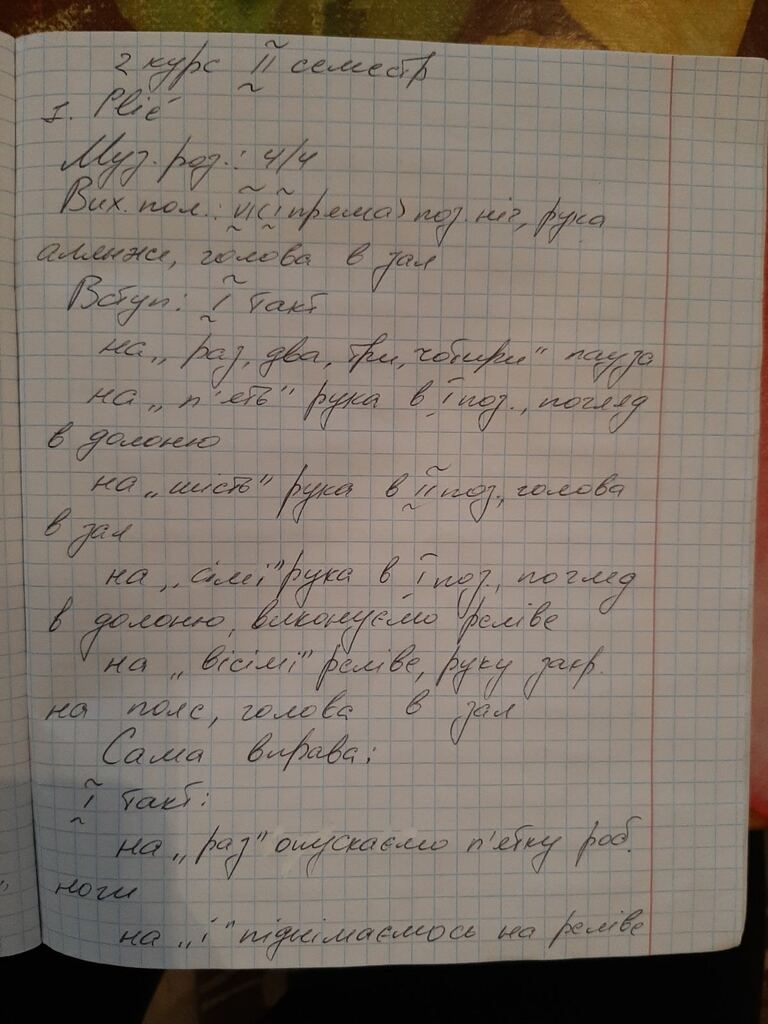 2 курс II семестр
I. Plié
Муз. роз.: 4/4
Вих. пол.: VI (I пряма) поз. ніг, рука
аллянже, голова в зал
Вступ: I такт
на „раз, два, три, чотири" пауза
на „п'ять" рука в I поз., погляд
в долоню
на „шість" рука в II поз., голова
в зал
на „сімі" рука в I поз., погляд
в долоню, виконуємо реліве
на „вісімі" реліве, руку закр.
на пояс, голова в зал
Сама вправа:
I такт:
на „раз" опускаємо п'ятку роб.
ноги
на „і" піднімаємось на реліве
"